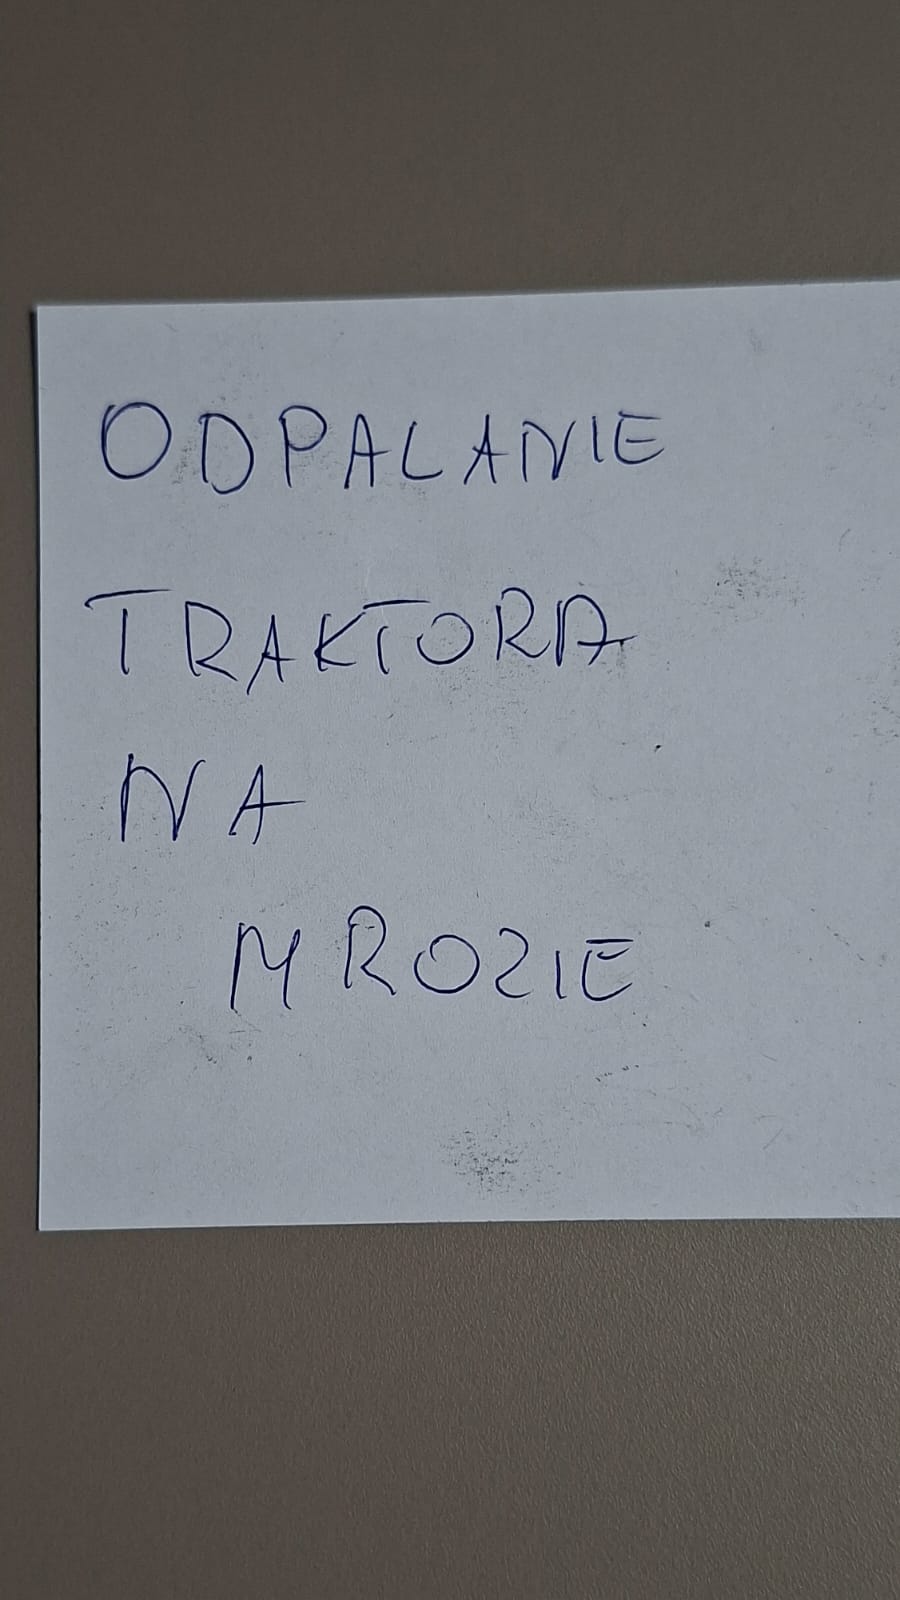 ODPALANIE
TRAKTORA
NA
MROZIE